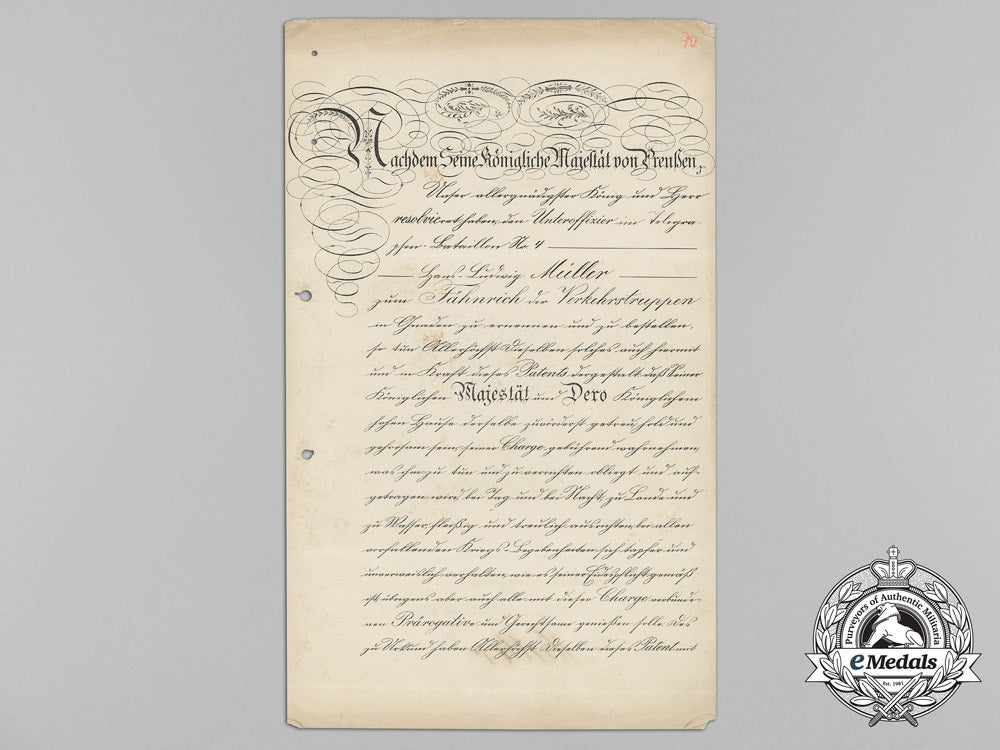 70
Nachdem Seine Königliche Majestät von Preußen,
Unser allergnädigster König und Herr
resolvieret haben, den Unteroffizier im Telegra
phen-Bataillon Nr. 4
Hans-Ludwig Müller
zum Fähnrich der Verkehrstruppen
in Gnaden zu ernennen und zu bestellen,
so tun Allerhöchst Dieselben solches auch hiermit
und in Kraft dieses Patents dergestalt daß Seiner
Königlichen Majestät und Dero Königlichem
hohen Hause derselbe zuvörderst getreu, hold und
gehorsam sein, seiner Charge gebührend wahrnehmen,
was ihm zu tun und zu verrichten obliegt und auf-
getragen wird, bei Tag und bei Nacht, zu Lande und
zu Wasser fleißig und treulich ausrichten, bei allen
vorfallenden Kriegs-Begebenheiten sich tapfer und
unverweislich verhalten, wie es seiner Eidespflicht gemäß
ist, übrigens aber auch alle mit dieser Charge verbunde-
nen Prärogative und Gerechtsame genießen solle. Des
zu Urkund haben Allerhöchst Dieselben dieses Patent mit
Purveyors of Authentic Militaria
eMedals
Est. 1981